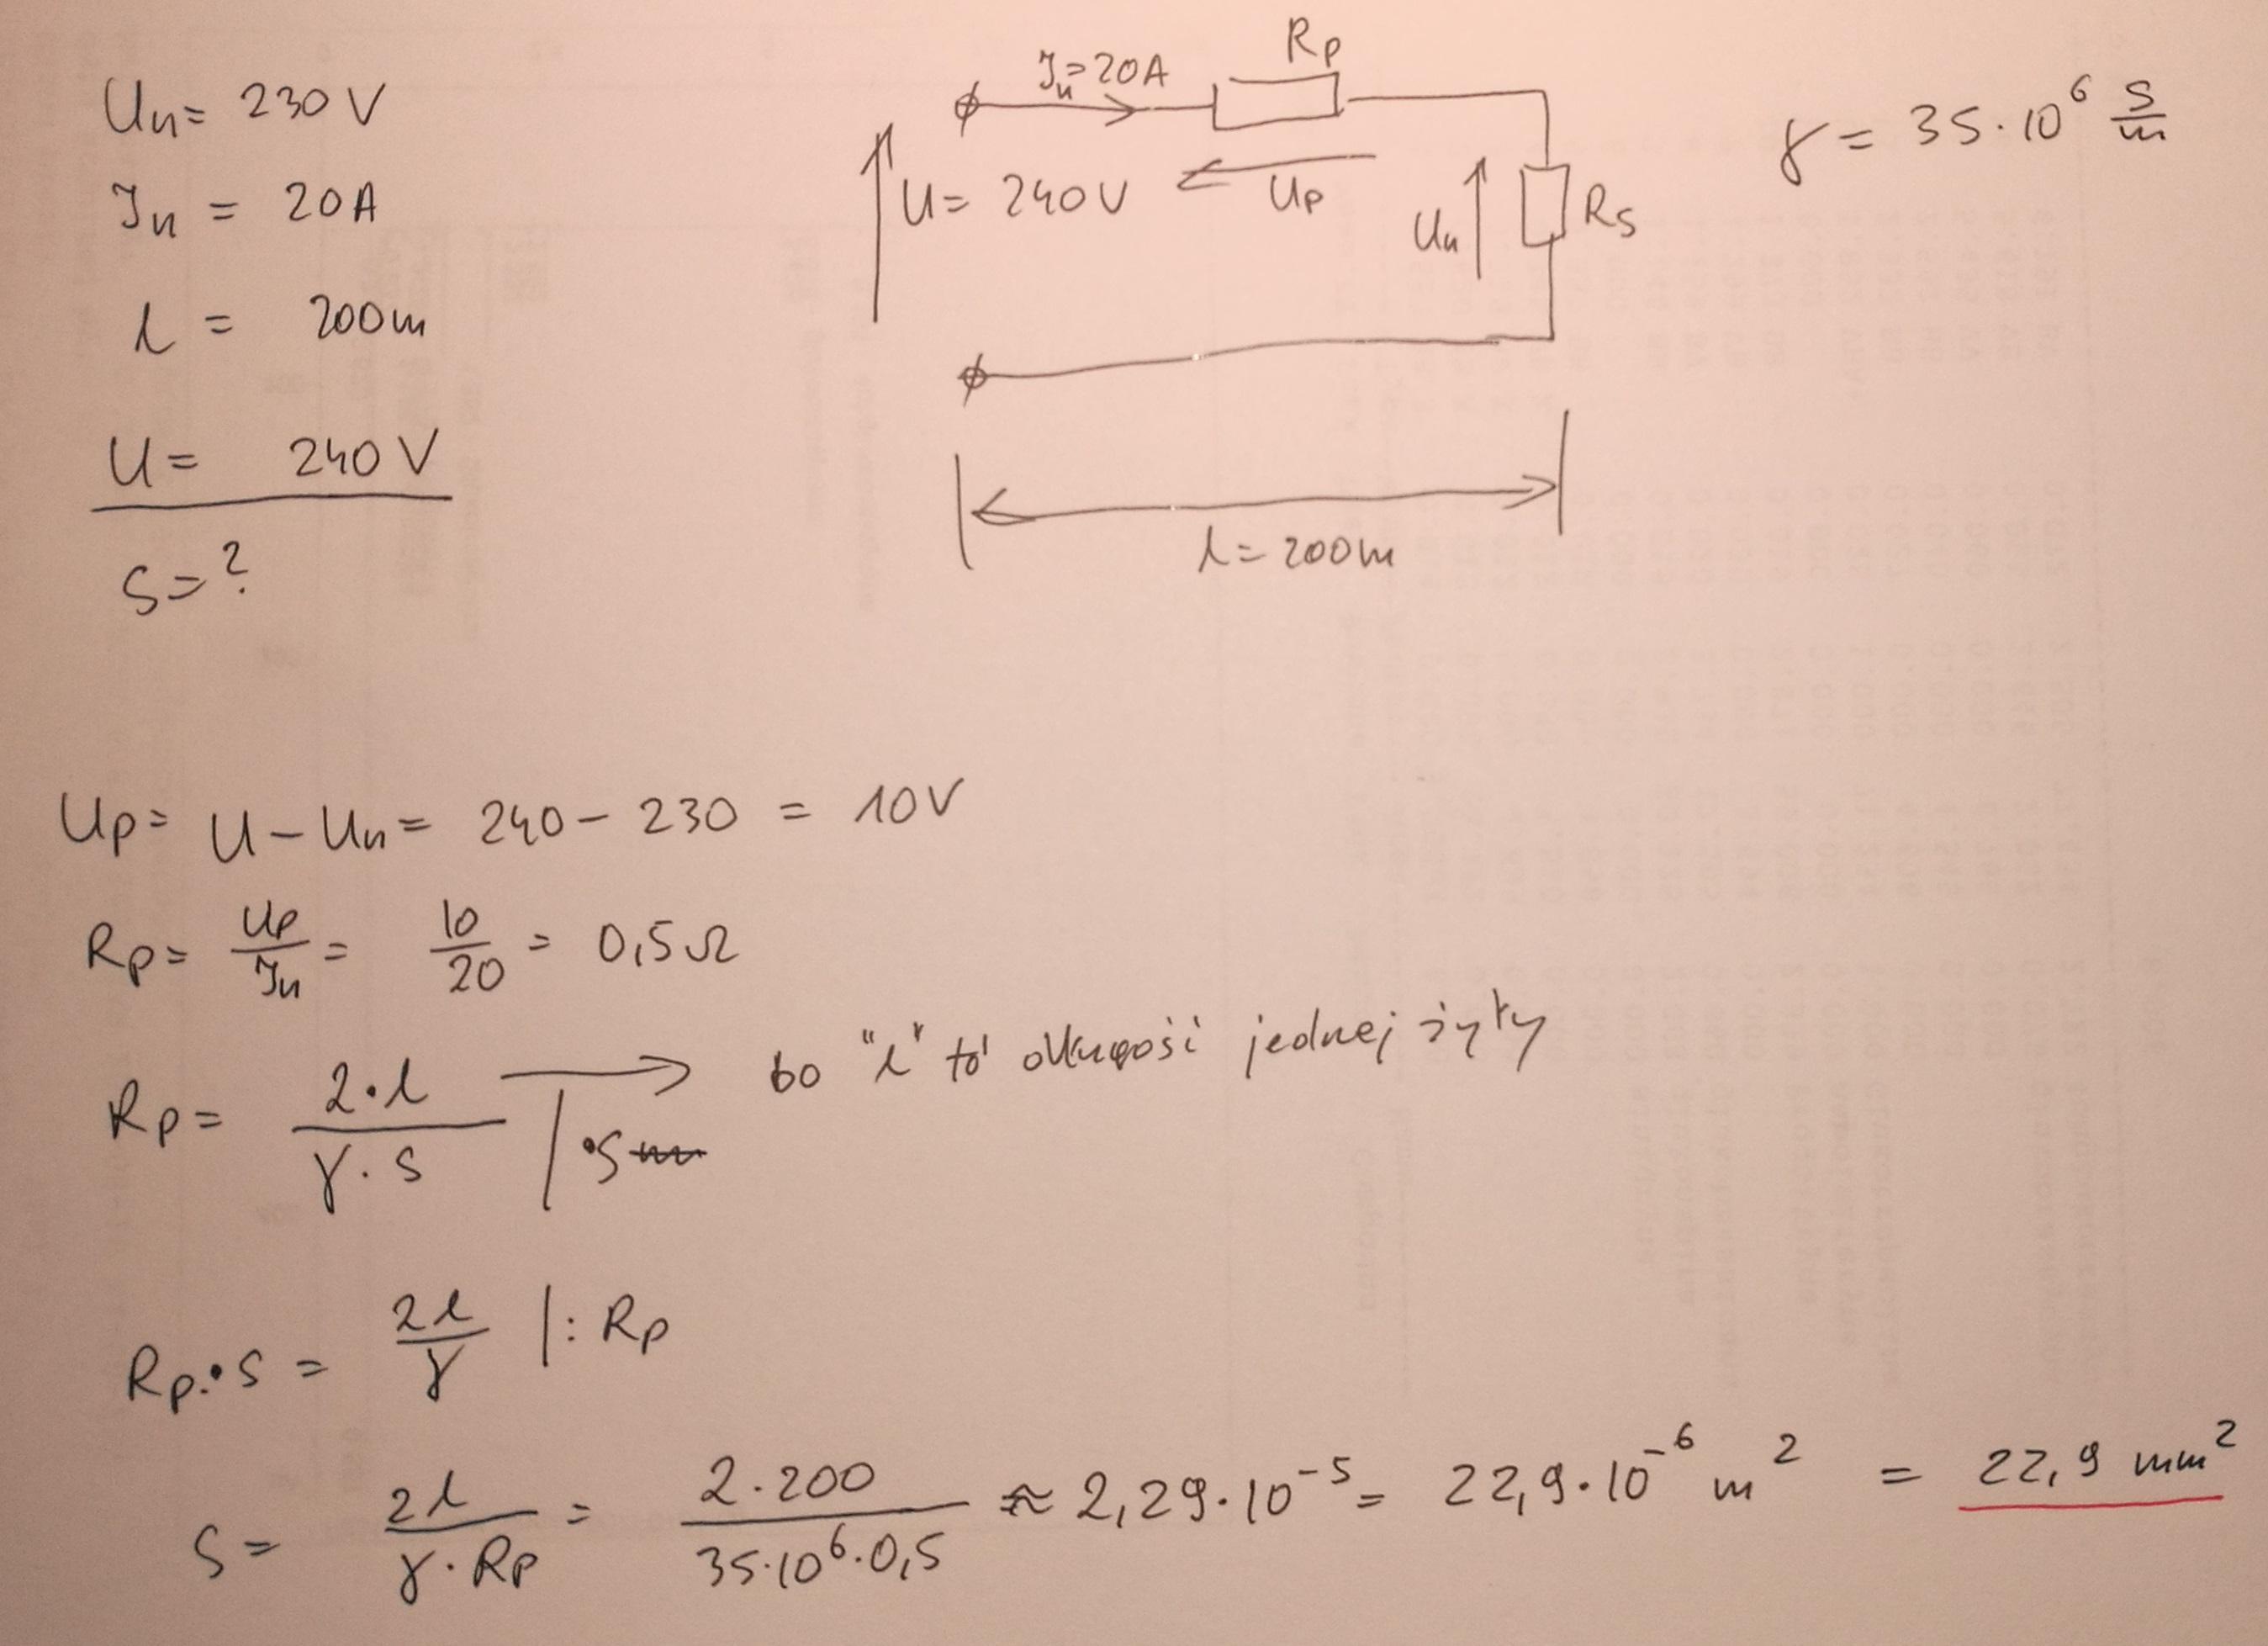 Un= 230 V
In = 20A
l = 200m
U= 240 V
S=?
In=20A
Rp
U= 240V
Up
Un
Rs
l= 200m
γ = 35·10⁶ S/m
Up= U-Un= 240- 230 = 10V
Rp= Up/In = 10/20 = 0,5Ω
Rp= 2·l/γ·s |·s → bo "l" to długość jednej żyły
Rp·s = 2l/γ |: Rp
S= 2l/γ·Rp = 2·200/35·10⁶·0,5 ≈ 2,29·10⁻⁵= 22,9·10⁻⁶ m² = 22,9 mm²